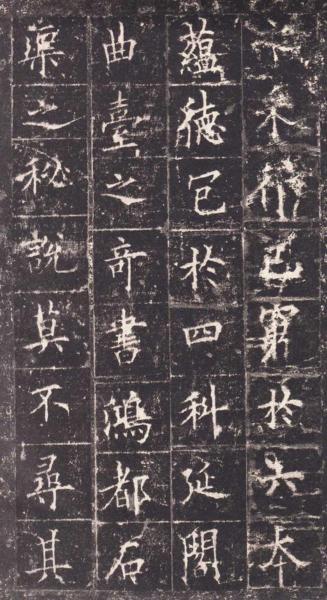 行已窮於六本
蘊德包於四科延閣
曲臺之奇書鴻都石
渠之秘說莫不尋其